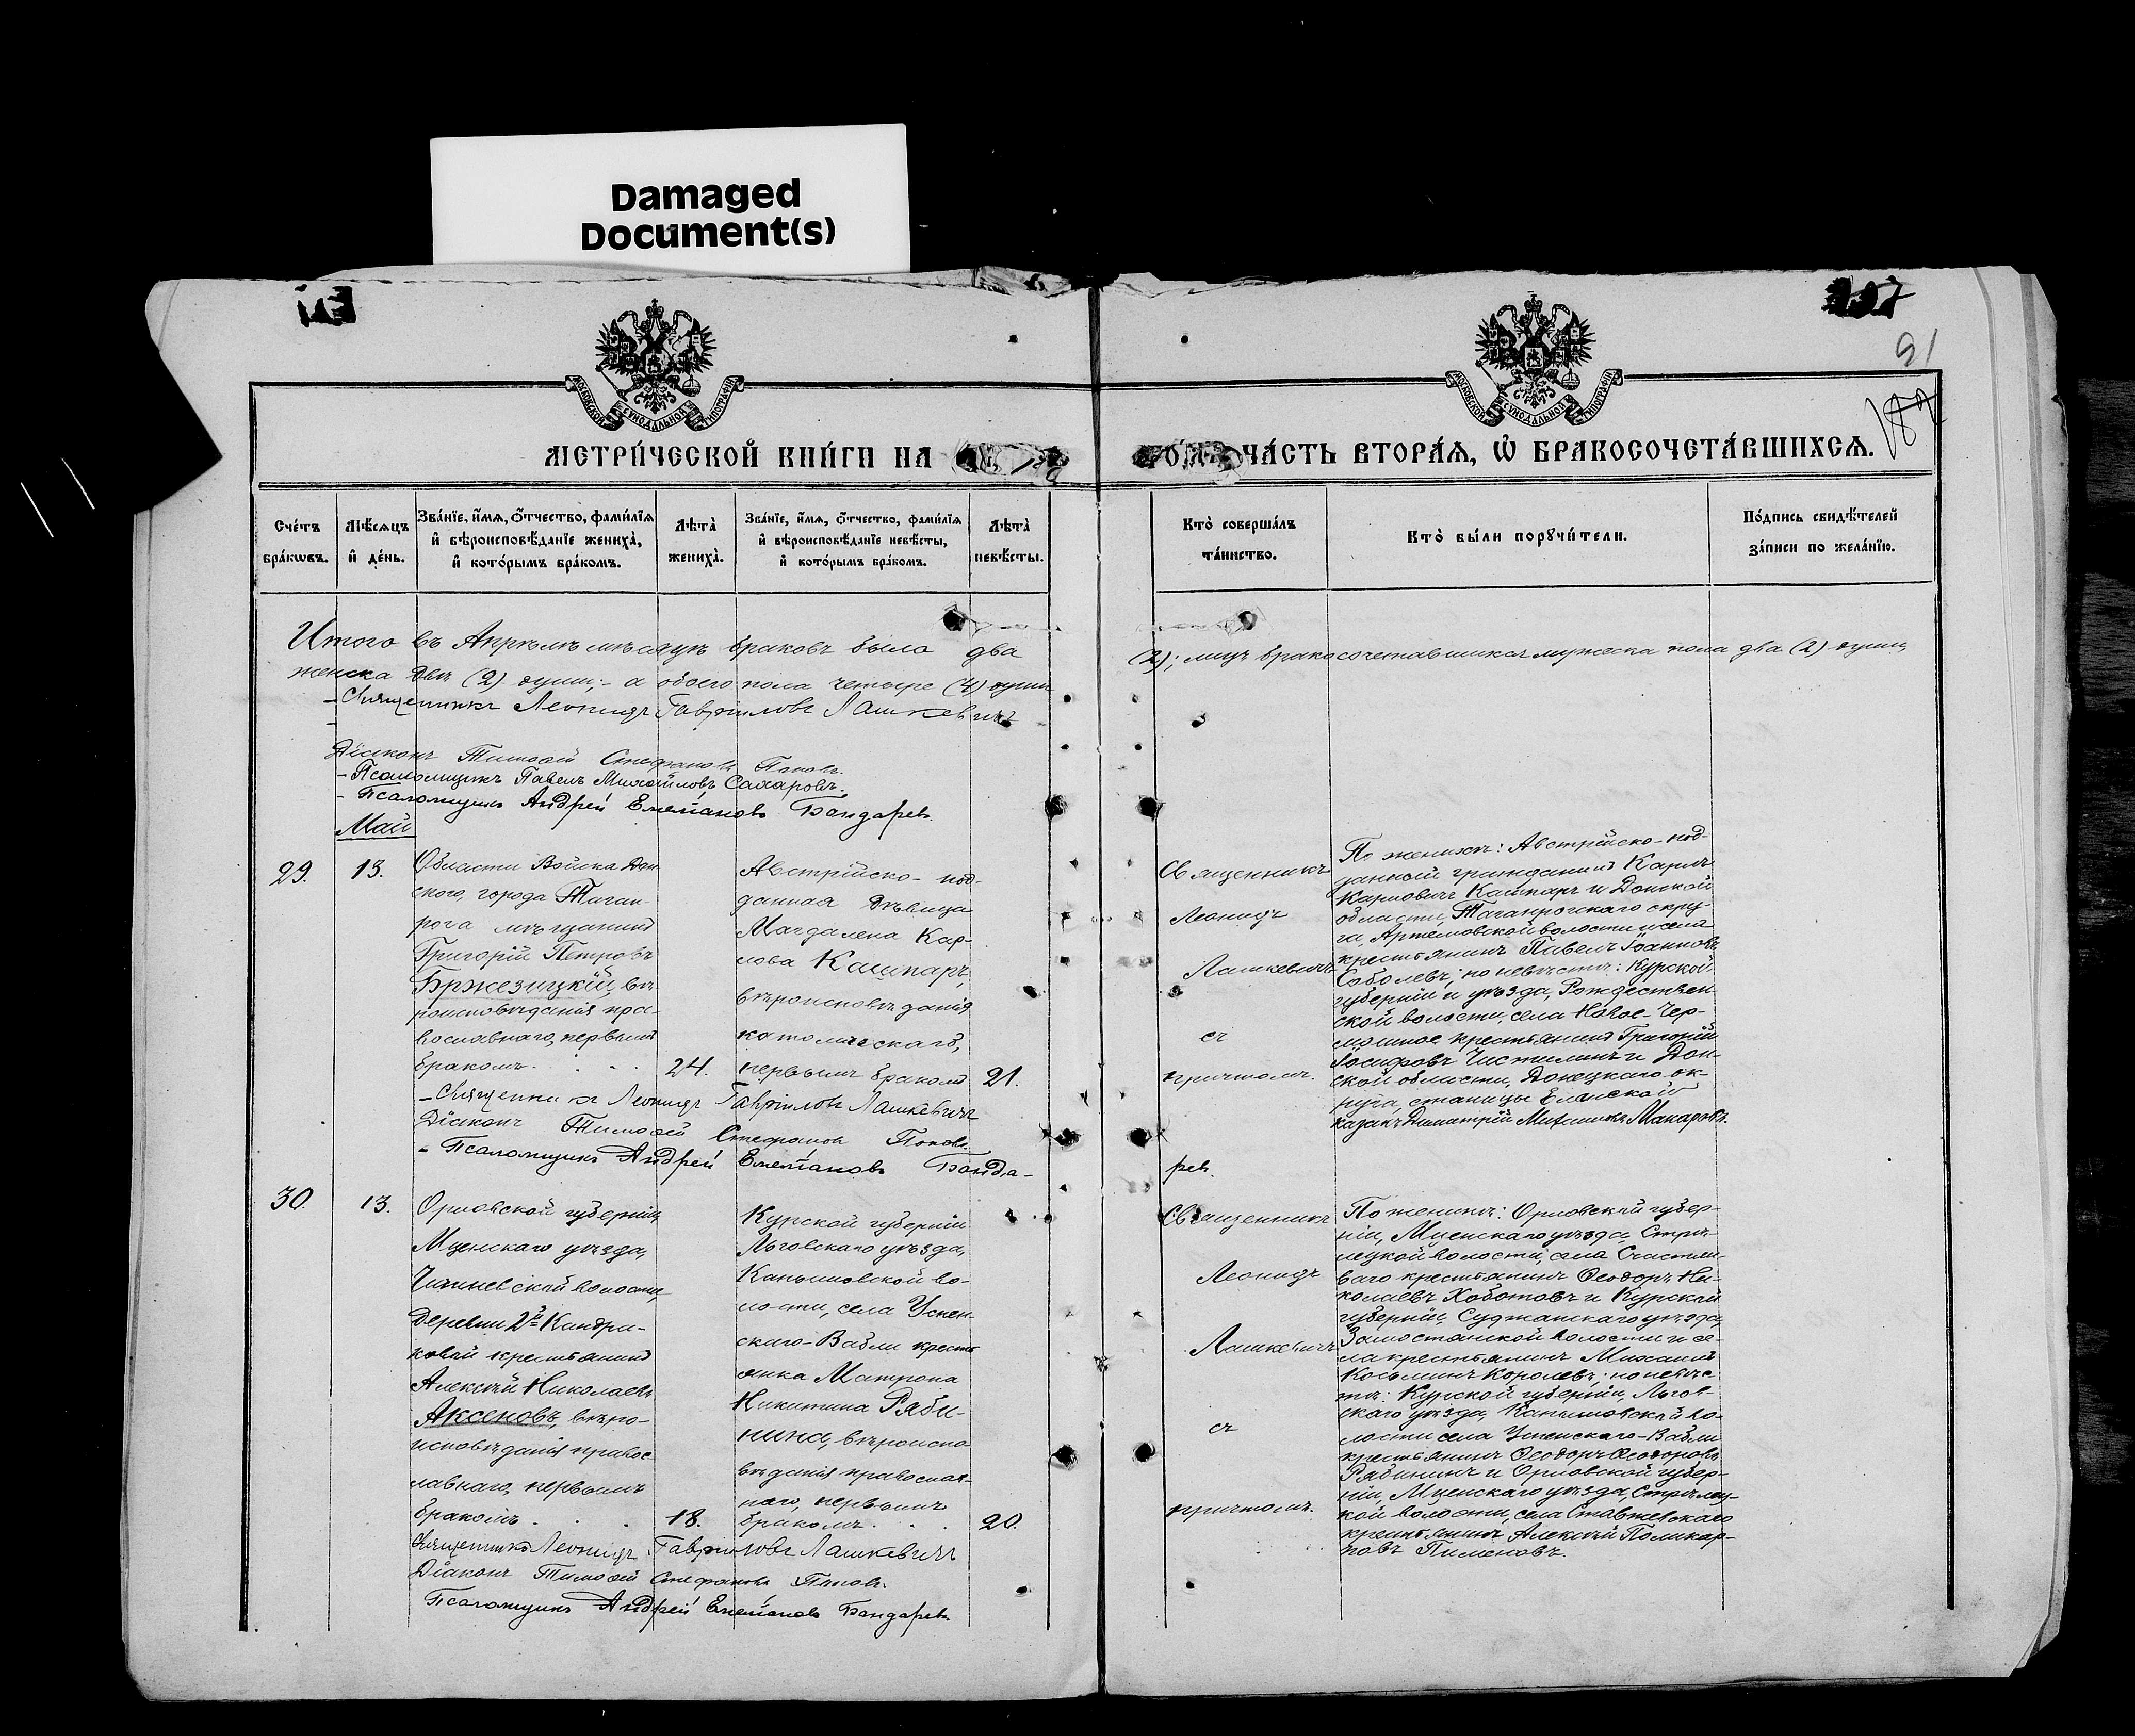 Damaged
Document(s)
91
МОСКОВСКОЙ СУНОДАЛЬНОЙ ТИПОГРАФІИ
МОСКОВСКОЙ СУНОДАЛЬНОЙ ТИПОГРАФІИ
МЕТРИ́ЧЕСКОЙ КНИ́ГИ НА
ЧА́СТЬ ВТОРА́Я, Ѡ БРАКОСОЧЕТА́ВШИХСЯ.
Сче́тъ бра́кѡвъ.
Мѣ́сяцъ и де́нь.
Зва́нїе, и́мя, о́тчество, фами́лїя и вѣроисповѣ́данїе жениха̀, и кото́рымъ бра́комъ.
Лѣта̀ жениха̀.
Зва́нїе, и́мя, о́тчество, фами́лїя и вѣроисповѣ́данїе невѣ́сты, и кото́рымъ бра́комъ.
Лѣта̀ невѣ́сты.
Кто̀ соверша́лъ та́инство.
Кто̀ бы́ли порꙋчи́тели.
По́дпись свидѣ́телей за́писи по жела́нїю.
Итого въ Апрѣлѣ мѣсяцѣ браковъ было два
(2); лицъ бракосочетавшихся мужеска пола два (2) души,
женска двѣ (2) души; - а обоего пола четыре (4) души
- Священникъ Леонидъ Гавріиловъ Лашкевичъ
Діаконъ Тимоѳей Стефановъ Поповъ.
- Псаломщикъ Павелъ Михайловъ Сахаровъ.
- Псаломщикъ Андрей Емельяновъ Бандаревъ.
Май
29.
13.
Области Войска Дон
ского, города Таган-
рога мѣщанинъ
Григорій Петровъ
Бржезицкій, вѣ-
роисповѣданія пра-
вославнаго, первымъ
бракомъ.
24.
Австрійско-под-
данная дѣвица
Магдалена Кар-
лова Кашпаръ,
вѣроисповѣданія
католическаго,
первымъ бракомъ
21.
Священникъ
Леонидъ
Лашкевичъ
съ
причтомъ.
По женихѣ: Австрійско-под-
данный гражданинъ Карлъ
Карловичъ Кашпаръ и Донской
области, Таганрогскаго окру-
га, Артемовской волости и села
крестьянинъ Павелъ Іоанновъ
Соболевъ; по невѣстѣ: Курской
губерніи и уѣзда, Рождествен-
ской волости, села Новое-Чер-
мошное крестьянинъ Григорій
Іосифовъ Чистилинъ и Дон-
ской области, Донецкаго ок-
руга, станицы Еланской
казакъ Димитрій Михаиловъ Макаровъ.
- Священникъ Леонидъ Гавріиловъ Лашкевичъ
Діаконъ Тимоѳей Стефановъ Поповъ
- Псаломщикъ Андрей Емельяновъ Банда-
ревъ.
30.
13.
Орловской губерніи,
Мценскаго уѣзда,
волости,
деревни 2й Кандра-
ковой крестьянинъ
Алексѣй Николаевъ
Аксеновъ, вѣро-
исповѣданія правос
лавнаго, первымъ
бракомъ
18.
Курской губерніи
Льговскаго уѣзда,
во-
лости, села Успен-
скаго-Вабли кресть
янка Матрона
Никитина Ряби-
нина, вѣроиспо
вѣданія православ-
наго, первымъ
бракомъ.
20.
Священникъ
Леонидъ
Лашкевичъ
съ
причтомъ.
По женихѣ: Орловской губер-
ніи, Мценскаго уѣзда, Стрѣ-
лецкой волости, села Счастли-
ваго крестьянинъ Ѳеодоръ Ни-
колаевъ Хоботовъ и Курской
губерніи, Суджанскаго уѣзда,
Замостянской волости и се-
ла крестьянинъ Михаилъ
Косьминъ Королевъ; по невѣс
тѣ: Курской губерніи, Льгов-
скаго уѣзда, во-
лости села Успенскаго-Вабли
крестьянинъ Ѳеодоръ Ѳеодоровъ
Рябининъ и Орловской губер-
ніи, Мценскаго уѣзда, Стрѣлец-
кой волости, села
крестьянинъ Алексѣй Поликар-
повъ Пименовъ.
Священникъ Леонидъ Гавріиловъ Лашкевичъ
Діаконъ Тимоѳей Стефановъ Поповъ.
Псаломщикъ Андрей Емельяновъ Бандаревъ